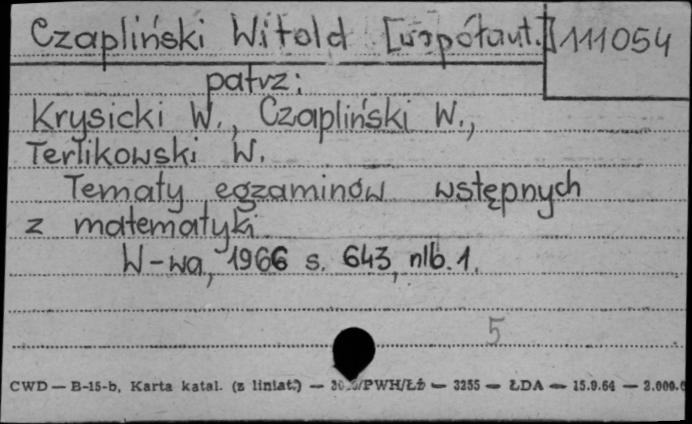 Czapliński Witold [współaut.] 111054
patrz:
Krysicki W., Czapliński W.,
Terlikowski W.
Tematy egzaminów wstępnych
z matematyki
W-wa, 1966 s. 643, nlb. 1.
5
CWD — B-15-b, Karta katal. (z liniat.) — /PWH/Łż — 3255 — ŁDA — 15.9.64 — 2.000.0